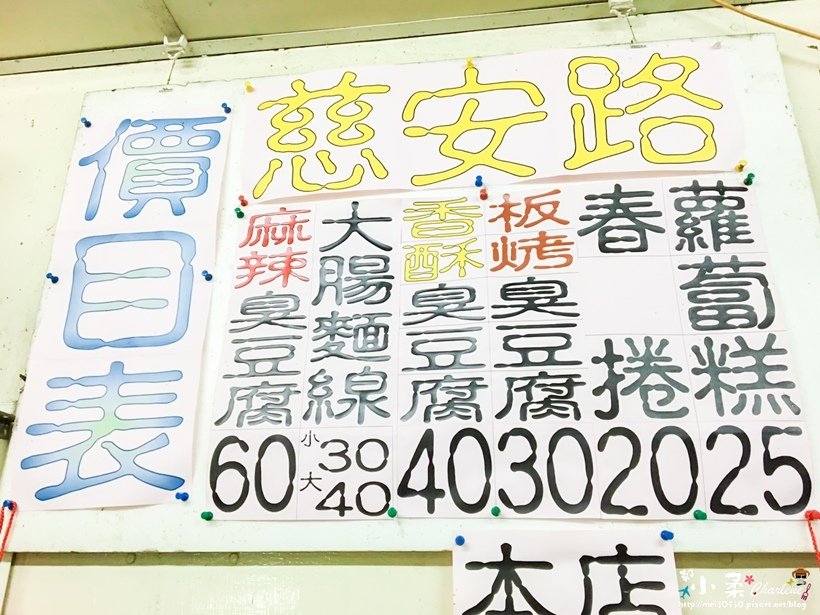 慈安路
價目表
蘿蔔糕 25
春捲 20
板烤臭豆腐 30
香酥臭豆腐 40
大腸麵線 小30 大40
麻辣臭豆腐 60
本店
小柔 Charlene
http://mei30530.pixnet.net/blog